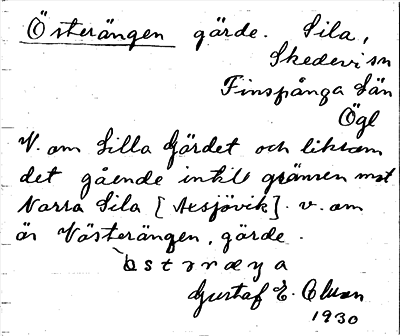 Österängen gärde. Sila,
Skedevi sn
Finspånga Län
Ögl
V. om Lilla Gärdet och liksom
det gående intill gränsen mot
Norra Sila [Axsjövik]. v. om
är Västerängen, gärde.
Gustaf E. Olson
1930